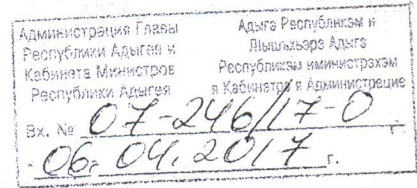 Администрация Главы
Республики Адыгея и
Кабинета Министров
Республики Адыгея
Адыгэ Республикэм и
Лӏышъхьэрэ Адыгэ
Республикэм иминистрэхэм
я Кабинетрэ я Администрацие
Вх. № 07-246/17-0
"06" 04. 2017 г.